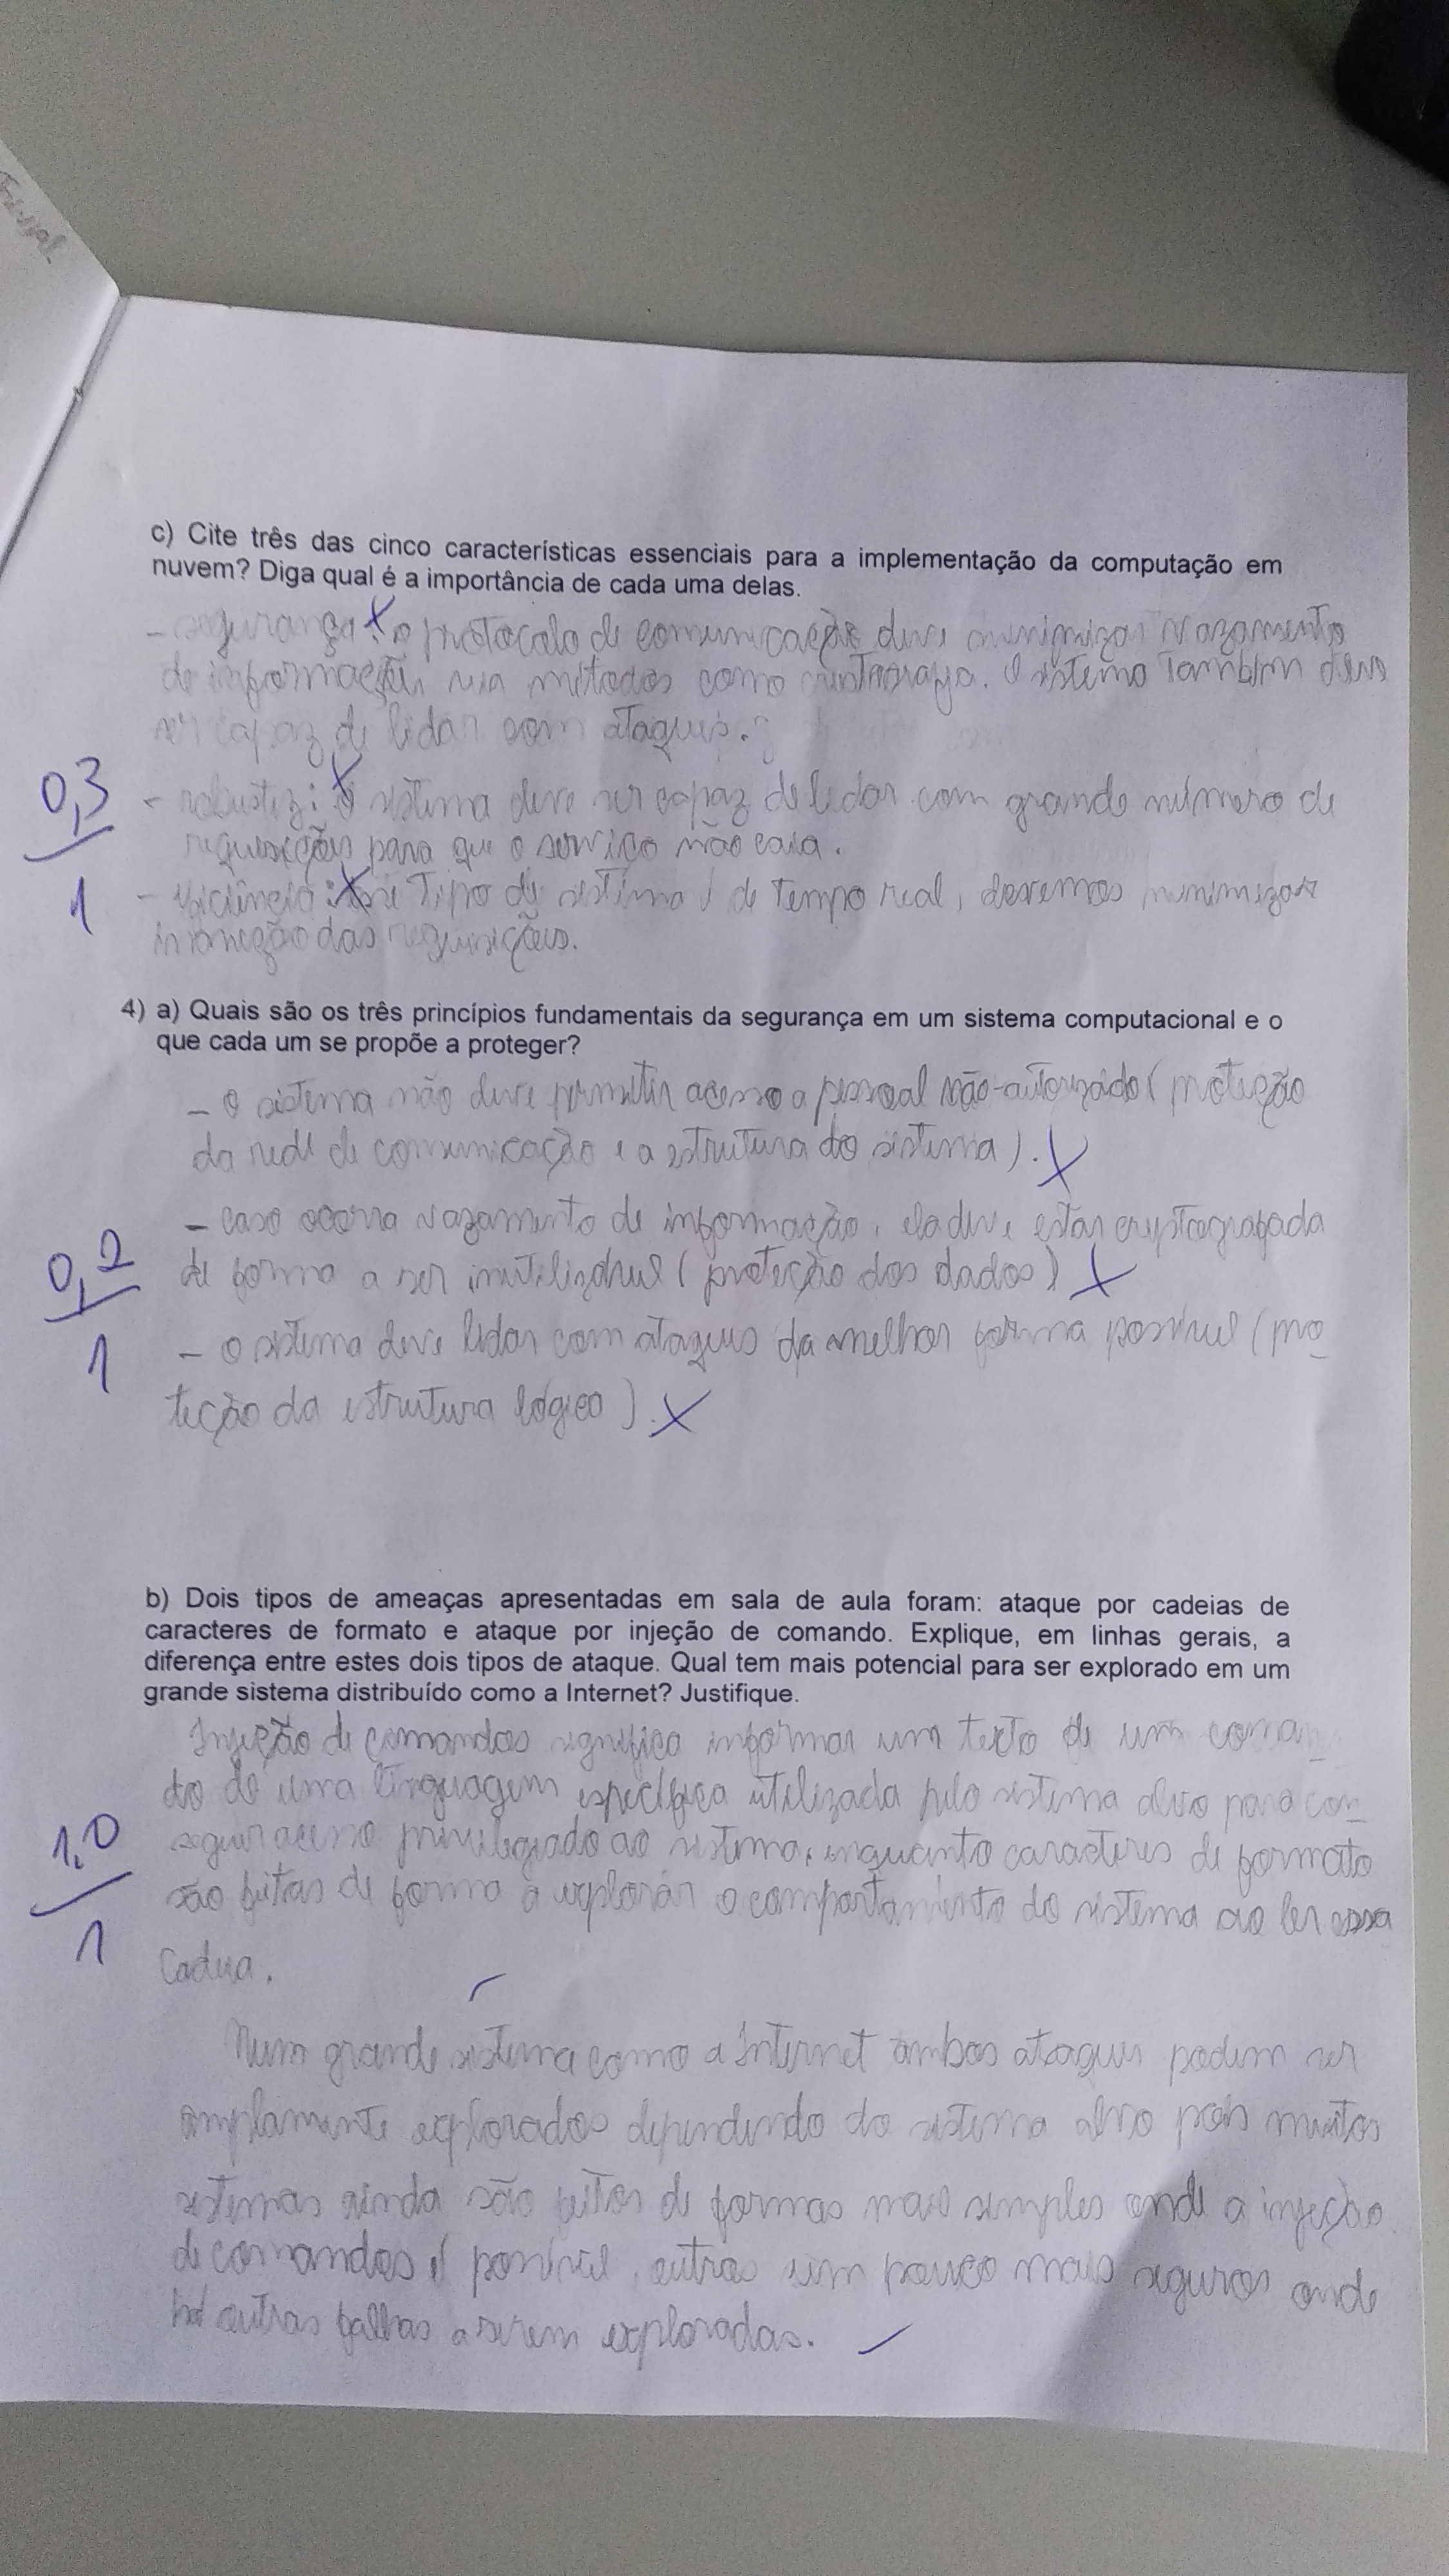 c) Cite três das cinco características essenciais para a implementação da computação em
nuvem? Diga qual é a importância de cada uma delas.
- segurança: o protocolo de comunicação deve minimizar vazamento
de informação via métodos como criptografia. O sistema também deve
ser capaz de lidar com ataques.
0,3
1
- robustez: O sistema deve ser capaz de lidar com grande número de
requisições para que o serviço não caia.
- eficiência: esse tipo de sistema é de tempo real, devemos minimizar
das requisições.
4) a) Quais são os três princípios fundamentais da segurança em um sistema computacional e o
que cada um se propõe a proteger?
- o sistema não deve permitir acesso a pessoal não-autorizado (proteção
da rede de comunicação e a estrutura do sistema).
- caso ocorra vazamento de informação, ela deve estar cryptografada
de forma a ser inutilizável (proteção dos dados)
0,2
1
- o sistema deve lidar com ataques da melhor forma possível (pro
teção da estrutura lógica).
b) Dois tipos de ameaças apresentadas em sala de aula foram: ataque por cadeias de
caracteres de formato e ataque por injeção de comando. Explique, em linhas gerais, a
diferença entre estes dois tipos de ataque. Qual tem mais potencial para ser explorado em um
grande sistema distribuído como a Internet? Justifique.
Injeção de comandos significa informar um texto de um coman_
do de uma linguagem específica utilizada pelo sistema alvo para con_
seguir acesso privilegiado ao sistema, enquanto caracteres de formato
são feitas de forma a explorar o comportamento do sistema ao ler essa
cadeia.
1,0
1
Num grande sistema como a Internet ambos ataques podem ser
amplamente explorados dependendo do sistema alvo pois muitos
sistemas ainda são feitos de formas mais simples onde a injeção
de comandos é possível, outros um pouco mais seguros onde
há outras falhas a serem exploradas.